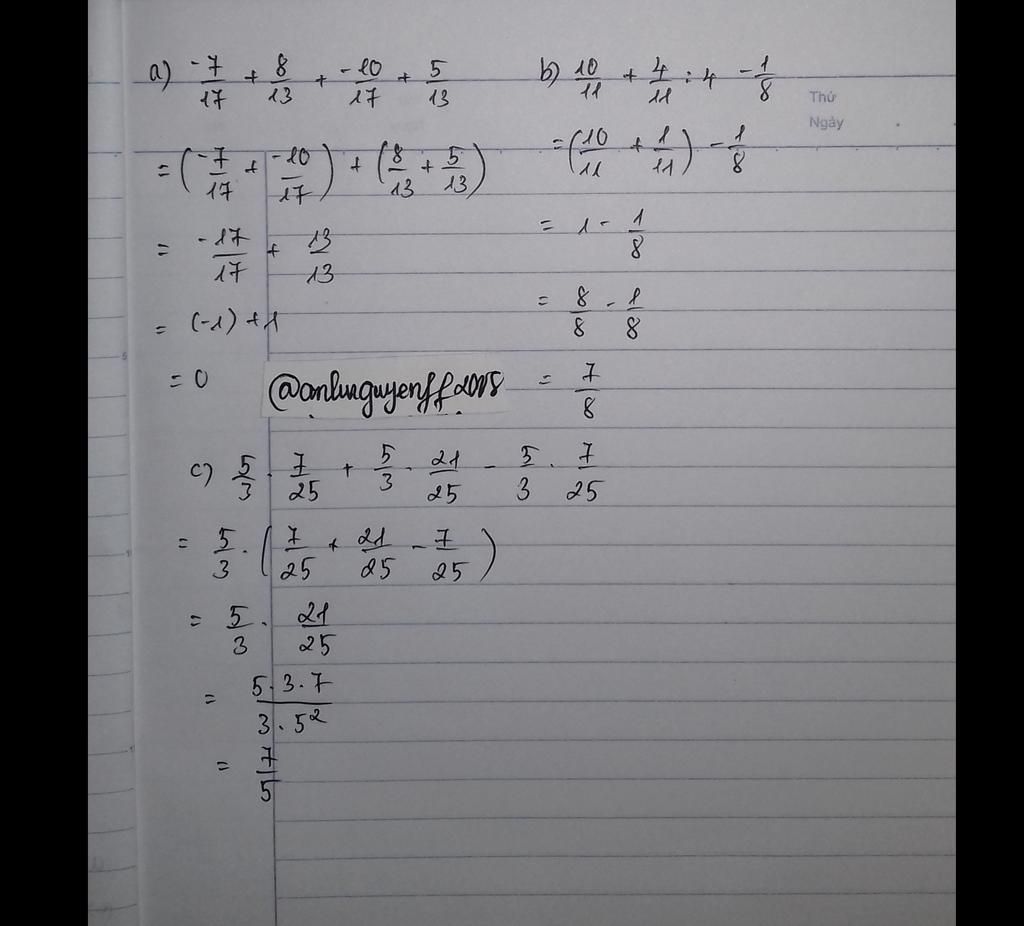 a) -7/17 + 8/13 + -10/17 + 5/13
= (-7/17 + -10/17) + (8/13 + 5/13)
= -17/17 + 13/13
= (-1) + 1
= 0
b) 10/11 + 4/11 : 4 - 1/8
= (10/11 + 1/11) - 1/8
= 1 - 1/8
= 8/8 - 1/8
= 7/8
Thứ
Ngày
c) 5/3 . 7/25 + 5/3 . 21/25 - 5/3 . 7/25
= 5/3 . (7/25 + 21/25 - 7/25)
= 5/3 . 21/25
= 5.3.7/3.5²
= 7/5